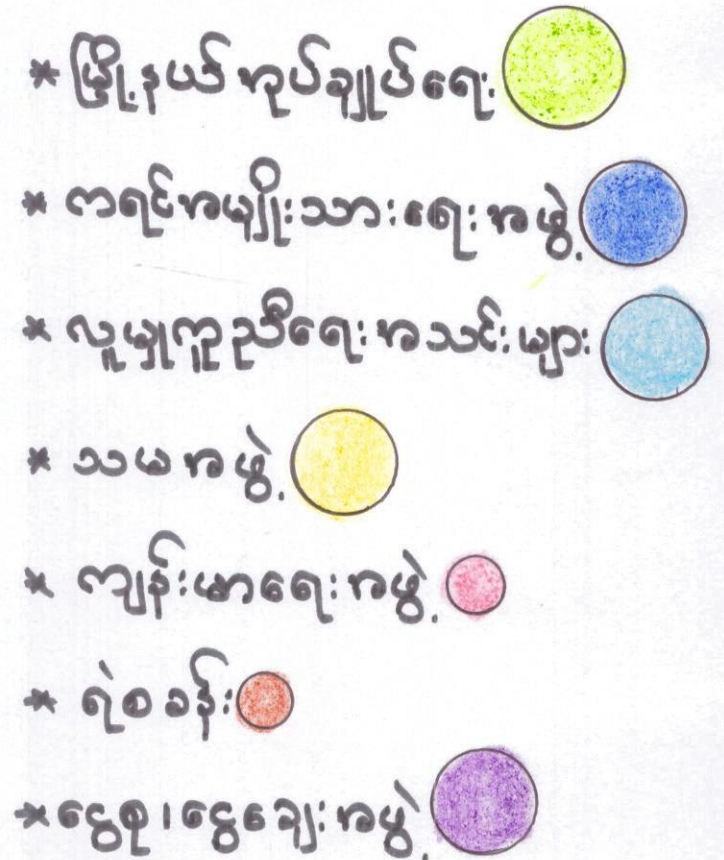 * မြို့နယ် အုပ်ချုပ်ရေး
* ကရင်အမျိုးသားရေးအဖွဲ့
* လူမှုကူညီရေးအသင်းများ
* သမအဖွဲ့
* ကျန်းမာရေးအဖွဲ့
* ရဲစခန်း
* ငွေစု၊ငွေချေးအဖွဲ့